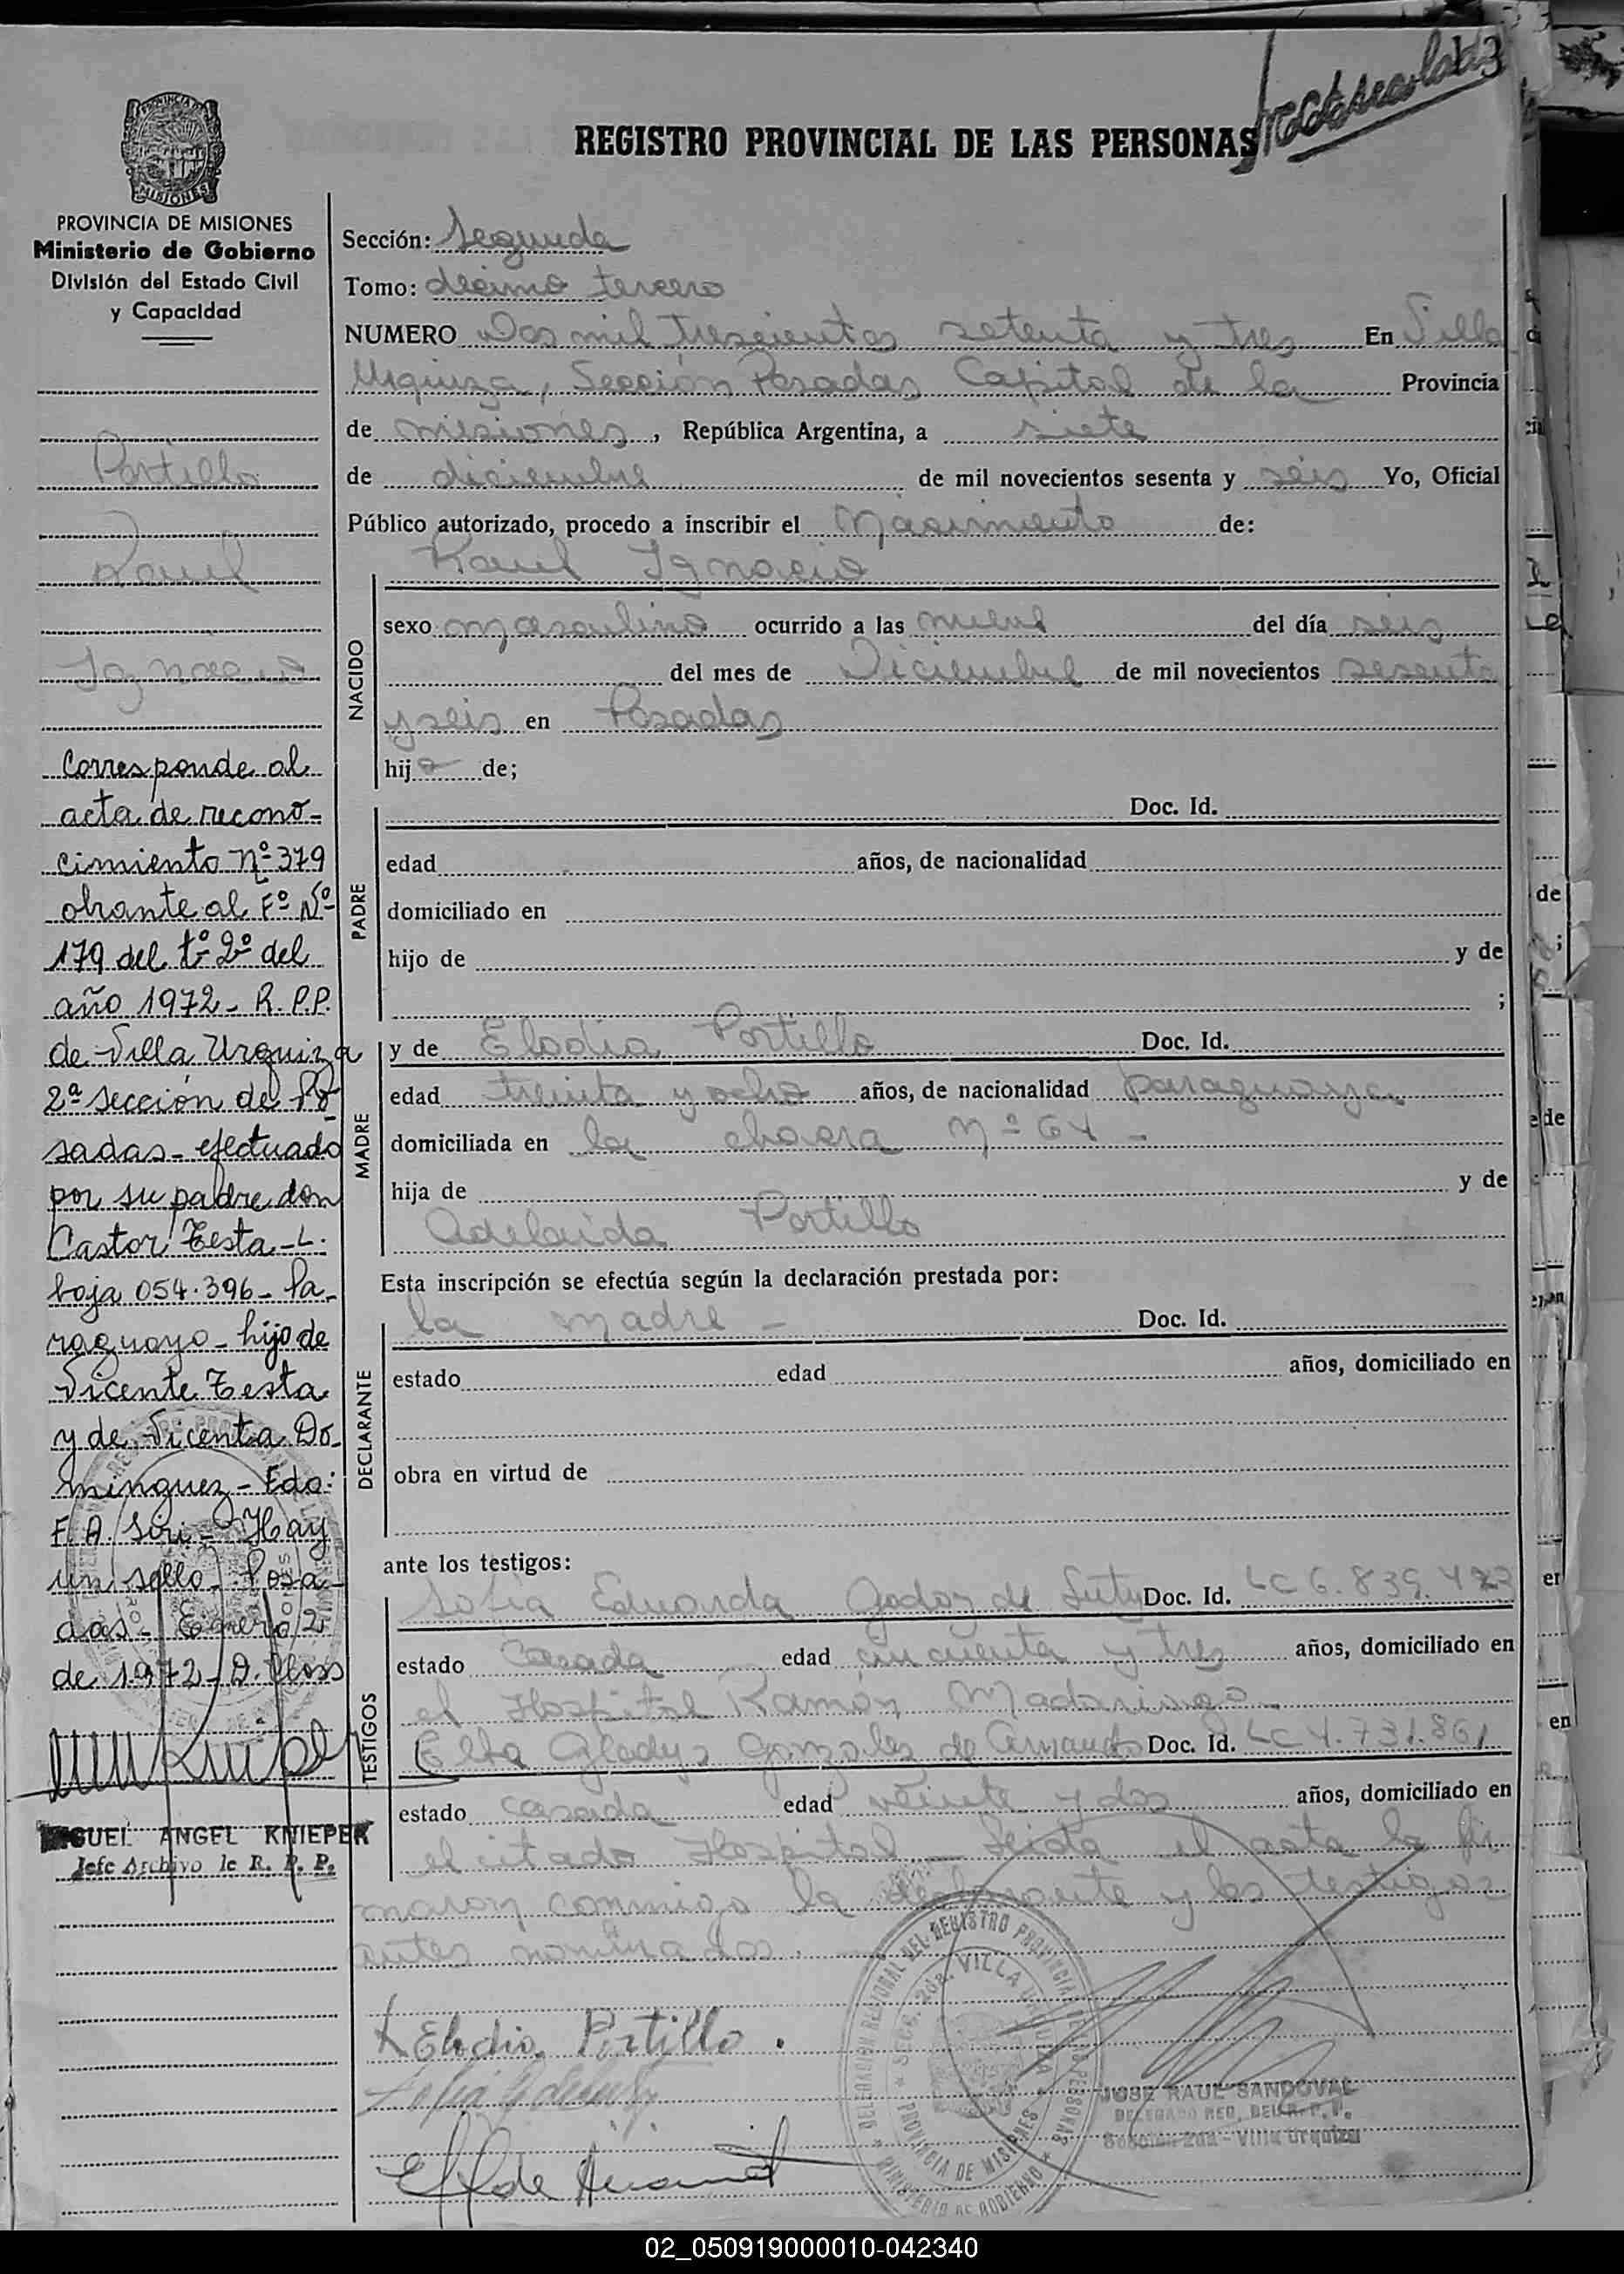 13
REGISTRO PROVINCIAL DE LAS PERSONAS
PROVINCIA DE MISIONES
Ministerio de Gobierno
División del Estado Civil
y Capacidad
Portillo
Raul
Ignacio
Corresponde al
acta de recono-
cimiento nº 379
obrante al Fº Nº
179 del tº 2º del
año 1972 - R. P.P.
de Villa Urquiza
2ª sección de Po-
sadas - efectuado
por su padre don
Castor Testa - L.
boja 054.396 - Pa-
raguayo - hijo de
Vicente Testa
y de Vicenta Do-
minguez - Fdo:
F. A. Siri - Hay
un sello - Posa-
das - Enero 2
de 1972 - D.
MIGUEL ANGEL KNIEPER
Jefe Archivo de R. P. P.
Sección: Segunda
Tomo: décimo tercero
NUMERO Dos mil trescientos setenta y tres En Villa
Urquiza, Sección Posadas Capital de la Provincia
de misiones, República Argentina, a siete
de diciembre de mil novecientos sesenta y séis Yo, Oficial
Público autorizado, procedo a inscribir el Nacimiento de:
Raul Ignacio
NACIDO
sexo masculino ocurrido a las nueve del día seis
del mes de Diciembre de mil novecientos sesenta
y seis en Posadas
hijo de;
PADRE
Doc. Id.
edad años, de nacionalidad
domiciliado en
hijo de y de
;
MADRE
y de Elodia Portillo Doc. Id.
edad treinta y ocho años, de nacionalidad paraguaya
domiciliada en la chacra Nº 64 -
hija de y de
Adelaida Portillo
Esta inscripción se efectúa según la declaración prestada por:
DECLARANTE
la madre - Doc. Id.
estado edad años, domiciliado en
obra en virtud de
ante los testigos:
TESTIGOS
Sofia Eduarda Godoy de Doc. Id. LC 6.839.
estado Casada edad cincuenta y tres años, domiciliado en
el Hospital Ramón Madariaga
Elba Gladys Gonzalez de Doc. Id. LC 4.731.861
estado casada edad veinte y dos años, domiciliado en
el citado Hospital - Leida el acta la fir
maron conmigo la declarante y los testigos
antes nominados.
Elodia Portillo.
DELEGACION REGIONAL DEL REGISTRO PROVINCIAL DE LAS PERSONAS
MINISTERIO DE GOBIERNO
Secc. 2da. VILLA URQUIZA
PROVINCIA DE MISIONES
JOSE RAUL SANDOVAL
DELEGADO REG. DEL R. P. P.
Sección 2da - Villa Urquiza
02_050919000010-042340